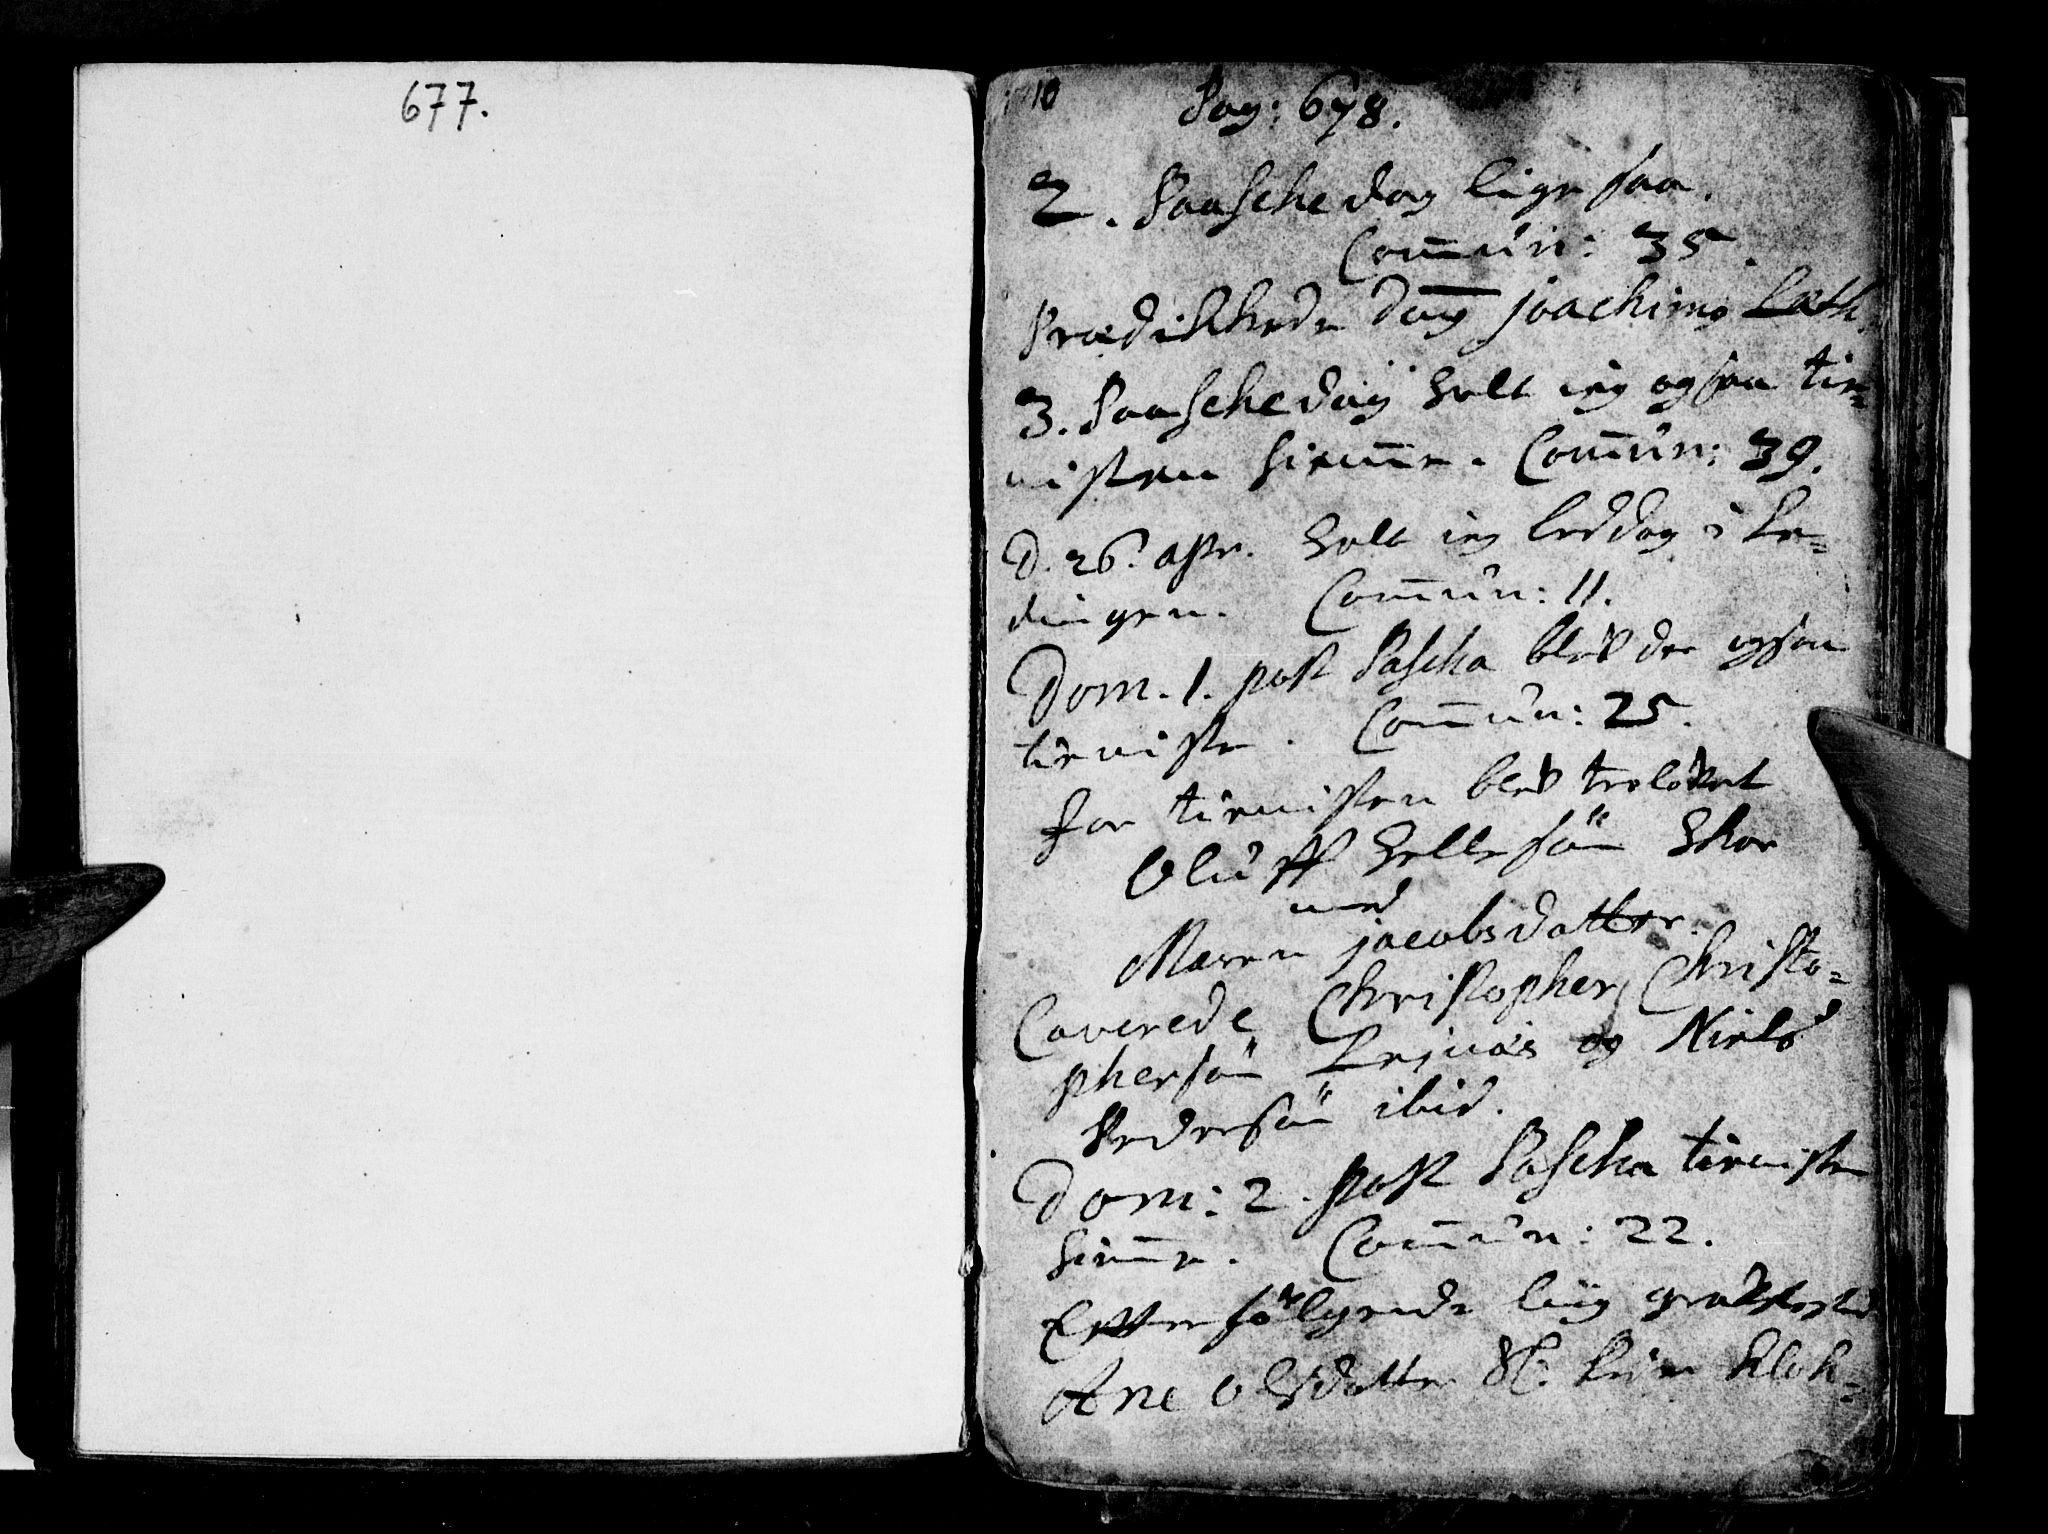 677.
10
Pag: 678.
2. Paaschedag lige saa.
Com̄un: 35.
Prædikkede Dan̄ Joachimg Lath.
3. Paaschedag holt ieg ogsaa tie-
nisten hiem̄e. Com̄un: 39.
D. 26. apr. holt ieg beddag i Le-
dingen. Com̄un: 11.
Dom. 1. post Pascha blef der ogsaa
tieniste. Com̄un: 25.
for tienisten blef trolovet
Oluff Hellesön
med
Maren Jacobsdatter.
Caverede Christopher Christo-
phersön og Niels
Pedersön ibid.
Dom: 2. post Pascha tienisten
hiem̄e. Com̄un: 22.
Efterfölgende liig
Ane Olsdatter